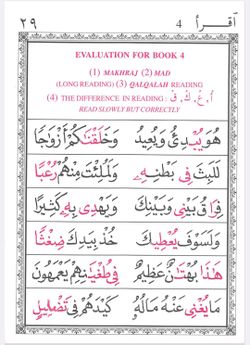 ٢٩ 4 اقرأ
EVALUATION FOR BOOK 4
(1) MAKHRAJ (2) MAD
(LONG READING) (3) QALQALAH READING
(4) THE DIFFERENCE IN READING : أ. ع. ك. ق
READ SLOWLY BUT CORRECTLY
هُوَ يُبْدِئُ وَيُعِيدُ وَخَلَقْنٰكُمْ أَزْوَاجًا
لَلَبِثَ فِي بَطْنِهِ وَلَمُلِئْتَ مِنْهُمْ رُعْبًا
فِرَاقُ بَيْنِي وَبَيْنِكَ وَيَهْدِي بِهِ كَثِيْرًا
وَلَسَوْفَ يُعْطِيكَ خُذْ بِيَدِكَ ضِغْثًا
هٰذَا بُهْتَانٌ عَظِيْمٌ فِي طُغْيٰنِهِمْ يَعْمَهُونَ
مَا يُغْنِي عَنْهُ مَالُهُ كَيْدَهُمْ فِي تَضْلِيلٍ